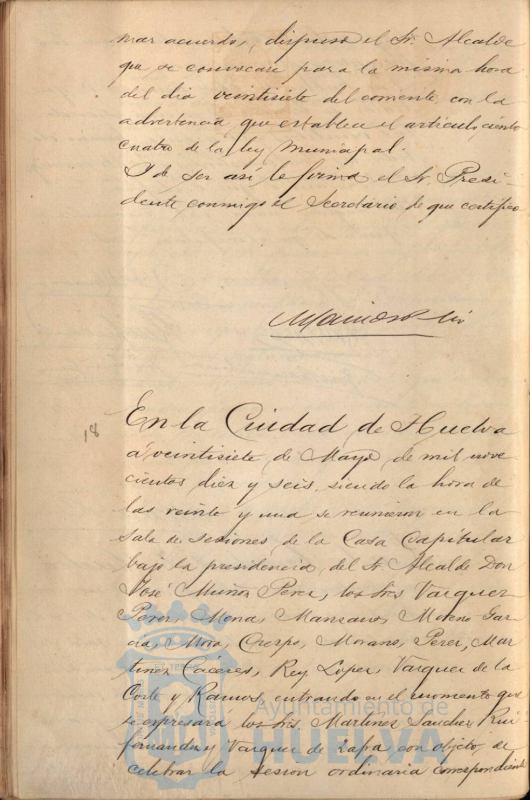 mar acuerdo, dispuso el Sr. Alcalde
que se convocare para la misma hora
del dia veintisiete del corriente con la
advertencia que establece el articulo ciento
cuatro de la ley Municipal.
Y de ser asi lo firma el Sr. Presi-
dente conmigo el Secretario de que certifico
18
En la Ciudad de Huelva
á veintisiete de Mayo de mil nove
cientos diez y seis, siendo la hora de
las veinte y una se reunieron en la
sala de sesiones de la Casa Capitular
bajo la presidencia del Sr Alcalde Don
José Muñoz Perez, los Sres Vazquez
Perez, Mora, Manzano, Moreno Gar-
cia, Mora, Crespo, Morano, Perez, Mar-
tinez Caceres, Rey Lopez, Vazquez de la
Corte y Ramos, entrando en el momento que
se expresará los Sres Martinez Sanchez, Rui
fernandez y Vazquez de Zafra con objeto de
celebrar la sesion ordinaria correspondiente
Ayuntamiento de
HUELVA